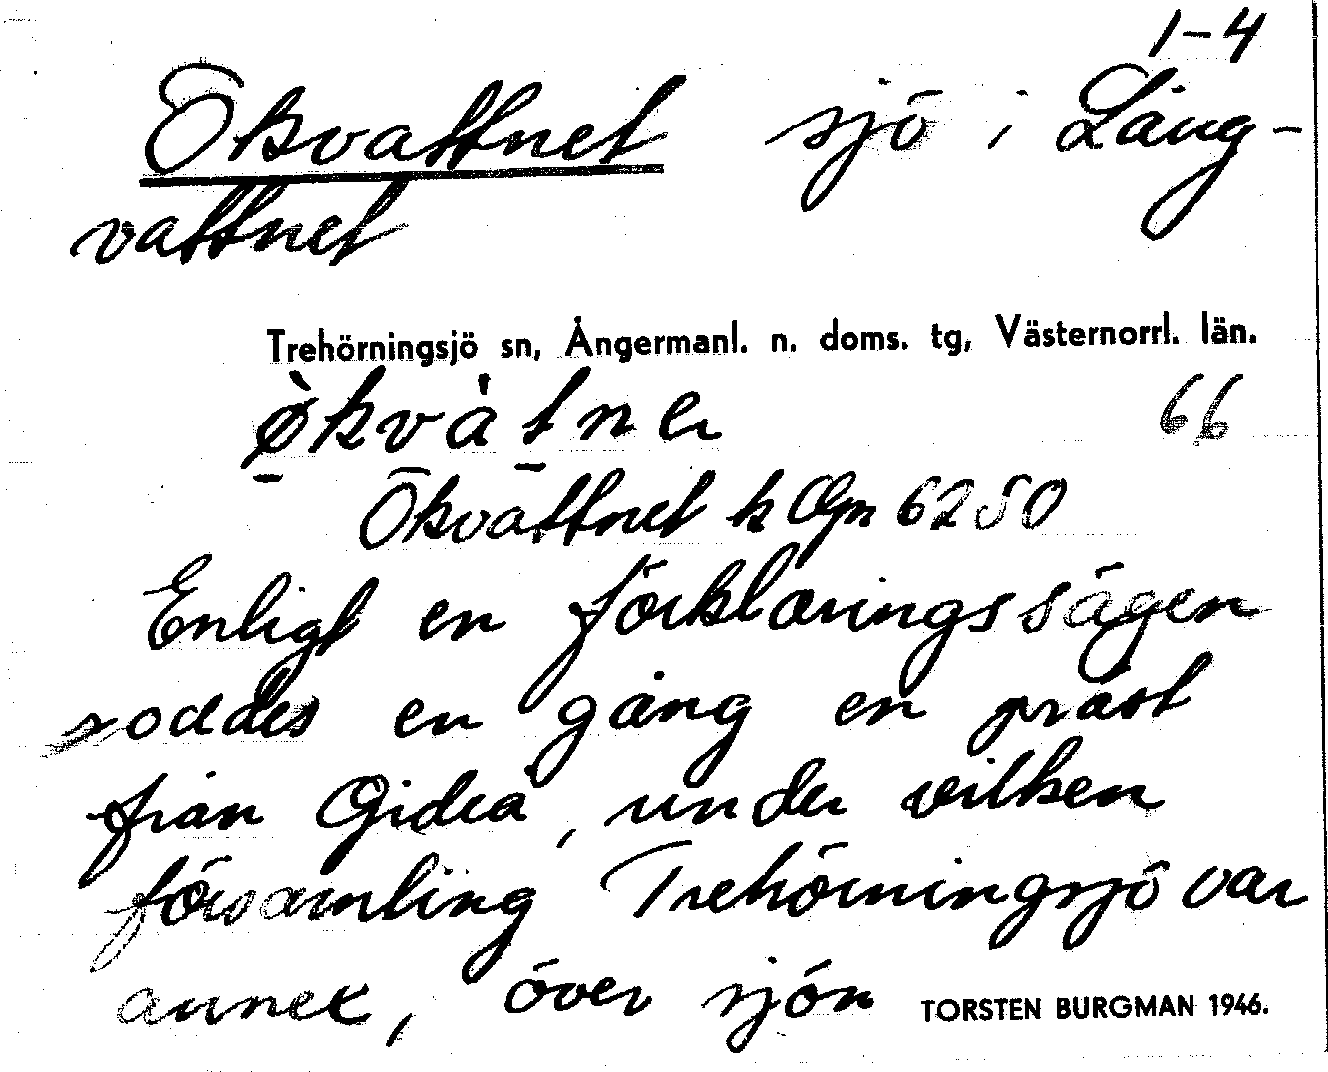 1-4
Ökvattnet sjö i Lång-
vattnet
Trehörningsjö sn, Ångermanl. n. doms. tg, Västernorrl. län.
økvàtner 66
Ökvattnet k Gpn 6250
Enligt en förklaringssägen
roddes en gång en präst
från Gideå, under vilken
församling Trehörningsjö var
annex, över sjön TORSTEN BURGMAN 1946.